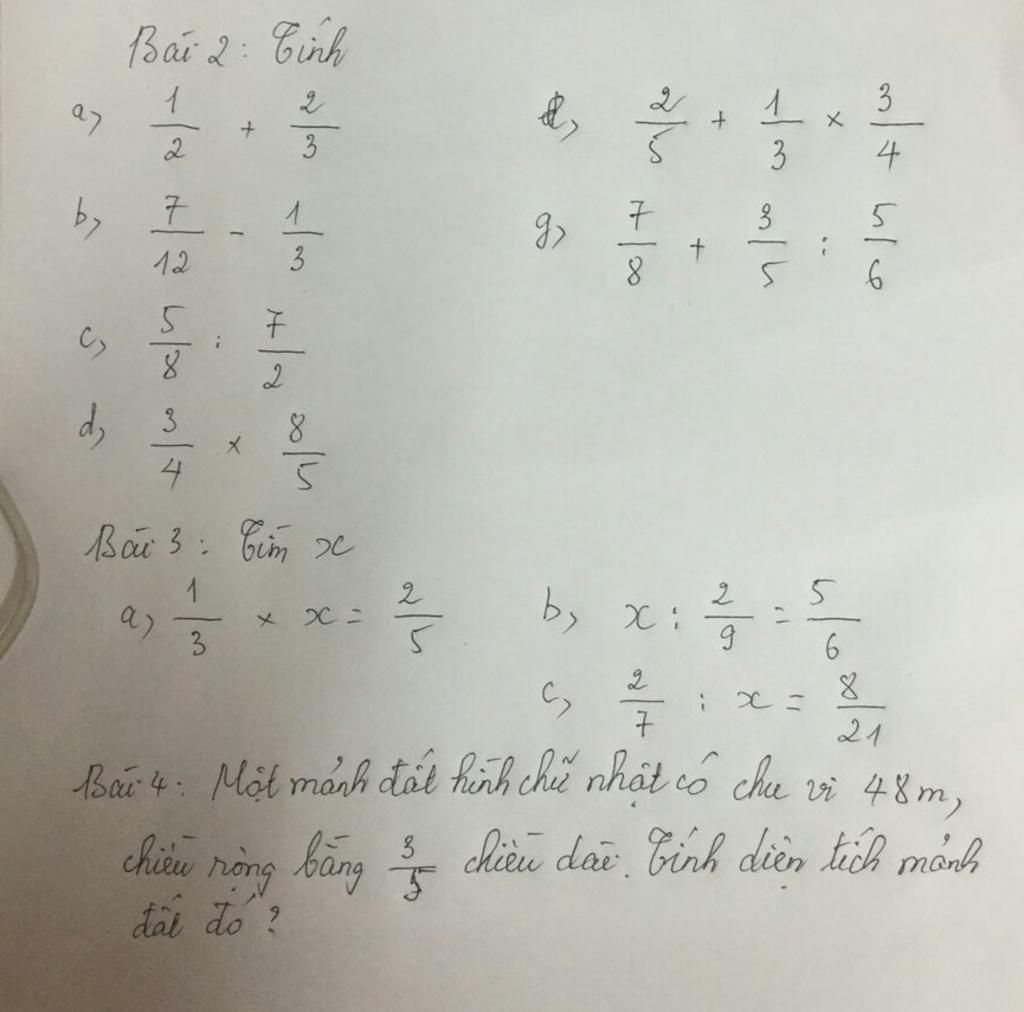 Bài 2: Tính
a) 1/2 + 2/3
e) 2/5 + 1/3 × 3/4
b) 7/12 - 1/3
g) 7/8 + 3/5 : 5/6
c) 5/8 : 7/2
d) 3/4 × 8/5
Bài 3: Tìm x
a) 1/3 × x = 2/5
b) x : 2/9 = 5/6
c) 2/7 : x = 8/21
Bài 4: Một mảnh đất hình chữ nhật có chu vi 48m,
chiều rộng bằng 3/5 chiều dài. Tính diện tích mảnh
đất đó?